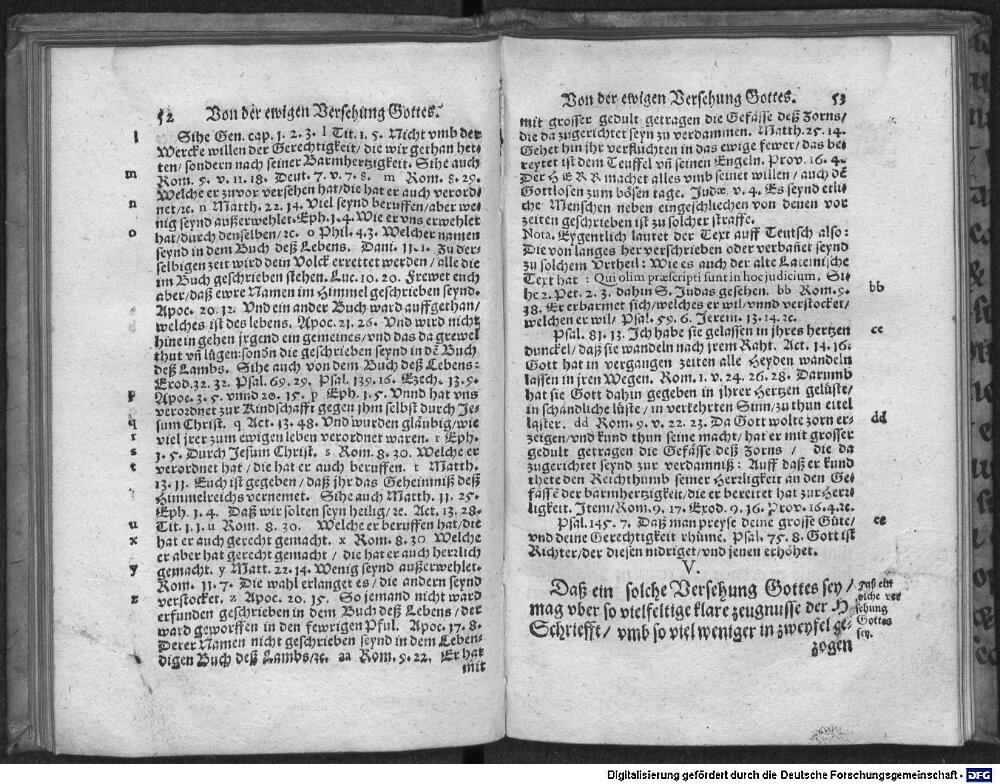 52 Von der ewigen Versehung Gottes.
l Sihe Gen. cap. 1. 2. 3. l Tit. 1. 5. Nicht vmb der
Wercke willen der Gerechtigkeit/ die wir gethan het-
ten/ sondern nach seiner Barmhertzigkeit. Sihe auch
m Rom. 9. v. 11. 18. Deut. 7. v. 7. 8. m Rom. 8. 29.
Welche er zuvor versehen hat/ die hat er auch verord-
n net/ ꝛc. n Matth. 22. 14. Viel seynd beruffen/ aber we-
nig seynd außerwehlet. Eph. 1. 4. Wie er vns erwehlet
o hat/ durch denselben/ ꝛc. o Phil. 4. 3. Welcher namen
seynd in dem Buch deß Lebens. Dani. 11. 1. Zu der-
selbigen zeit wird dein Volck errettet werden/ alle die
im Buch geschrieben stehen. Luc. 10. 20. Frewet euch
aber/ daß ewre Namen im Himmel geschrieben seynd.
Apoc. 20. 12. Vnd ein ander Buch ward auffgethan/
welches ist des lebens. Apoc. 21. 26. Vnd wird nicht
hinein gehen jrgend ein gemeines/ vnd das da grewel
thut vn̄ lügen: sondn̄ die geschrieben seynd in dē Buch
deß Lambs. Sihe auch von dem Buch deß Lebens:
Exod. 32. 32. Psal. 69. 29. Psal. 139. 16. Ezech. 13. 9.
p Apoc. 3. 5. vnnd 20. 15. p Eph. 1. 5. Vnnd hat vns
verordnet zur Kindschafft gegen jhm selbst durch Je-
q sum Christ. q Act. 13. 48. Vnd wurden gläubig/ wie
r viel jrer zum ewigen leben verordnet waren. r Eph.
s 1. 5. Durch Jesum Christ. s Rom. 8. 30. Welche er
t verordnet hat/ die hat er auch beruffen. t Matth.
13. 11. Euch ist gegeben/ daß jhr das Geheimniß deß
Himmelreichs vernemet. Sihe auch Matth. 11. 25.
Eph. 1. 4. Daß wir solten seyn heilig/ ꝛc. Act. 13. 28.
u Tit. 1. 1. u Rom. 8. 30. Welche er beruffen hat/ die
x hat er auch gerecht gemacht. x Rom. 8. 30 Welche
er aber hat gerecht gemacht/ die hat er auch herrlich
y gemacht. y Matt. 22. 14. Wenig seynd außerwehlet.
Rom. 11. 7. Die wahl erlanget es/ die andern seynd
z verstocket. z Apoc. 20. 15. So jemand nicht ward
erfunden geschrieben in dem Buch deß Lebens/ der
ward geworffen in den fewrigen Pful. Apoc. 17. 8.
Derer Namen nicht geschrieben seynd in dem Leben-
digen Buch deß Lambs/ ꝛc. aa Rom. 9. 22. Er hat
mit
Von der ewigen Versehung Gottes. 53
mit grosser gedult getragen die Gefässe deß Zorns/
die da zugerichtet seyn zu verdammen. Matth. 25. 14.
Gehet hin jhr verfluchten in das ewige fewer/ das be-
reytet ist dem Teuffel vn̄ seinen Engeln. Prov. 16. 4.
Der HERR machet alles vmb seinet willen/ auch dē
Gottlosen zum bösen tage. Judæ v. 4. Es seynd etli-
che Menschen neben eingeschliechen von denen vor
zeiten geschrieben ist zu solcher straffe.
Nota. Eygentlich lautet der Text auff Teutsch also:
Die von langes her verschrieben oder verbañet seynd
zu solchem Vrtheil: Wie es auch der alte Lateinische
Text hat: Qui olim præscripti sunt in hoc judicium. Si-
he 2. Per. 2. 3. dahin S. Judas gesehen. bb Rom. 9. bb
18. Er erbarmet sich/ welches er wil/ vnnd verstocket/
welchen er wil/ Psal. 59. 6. Jerem. 13. 14. ꝛc.
Psal. 81. 13. Ich habe sie gelassen in jhres hertzen cc
dunckel/ daß sie wandeln nach jrem Raht. Act. 14. 16.
Gott hat in vergangen zeiten alle Heyden wandeln
lassen in jren Wegen. Rom. 1. v. 24. 26. 28. Darumb
hat sie Gott dahin gegeben in jhrer Hertzen gelüste/
in schändliche lüste/ in verkehrten Sinn/ zu thun eitel
laster. dd Rom. 9. v. 22. 23. Da Gott wolte zorn er- dd
zeigen/ vnd kund thun seine macht/ hat er mit grosser
gedult getragen die Gefässe deß Zorns/ die da
zugerichtet seynd zur verdamniß: Auff daß er kund
thete den Reichthumb seiner Herrligkeit an den Ge-
fässē der barmhertzigkeit/ die er bereitet hat zur Herr-
ligkeit. Item/ Rom. 9. 17. Exod. 9. 16. Prov. 16. 4. ꝛc.
Psal. 145. 7. Daß man preyse deine grosse Güte/ ee
vnd deine Gerechtigkeit rhüme. Psal. 75. 8. Gott ist
Richter/ der diesen nidriget/ vnd jenen erhöhet.
V.
Daß ein solche Versehung Gottes sey/
mag vber so vielfeltige klare zeugnusse der H
Schriefft/ vmb so viel weniger in zweyfel ge-
zogen
Daß ein
solche ver
sehung
Gottes
sey.
Digitalisierung gefördert durch die Deutsche Forschungsgemeinschaft - DFG